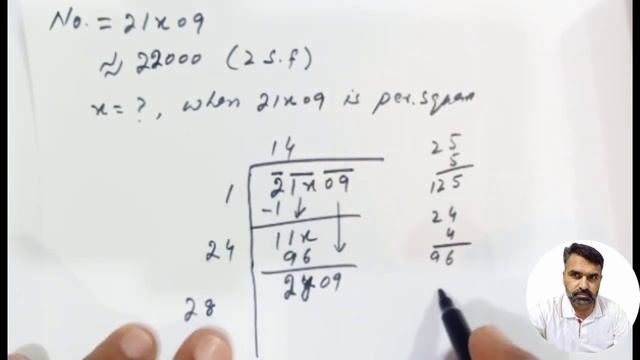 No. = 21x09
≈ 22000 (2 s.f)
x = ?, when 21x09 is per.square
14
1 21x09
-1
11x
24 96
2x09
28
25
5
125
24
4
96